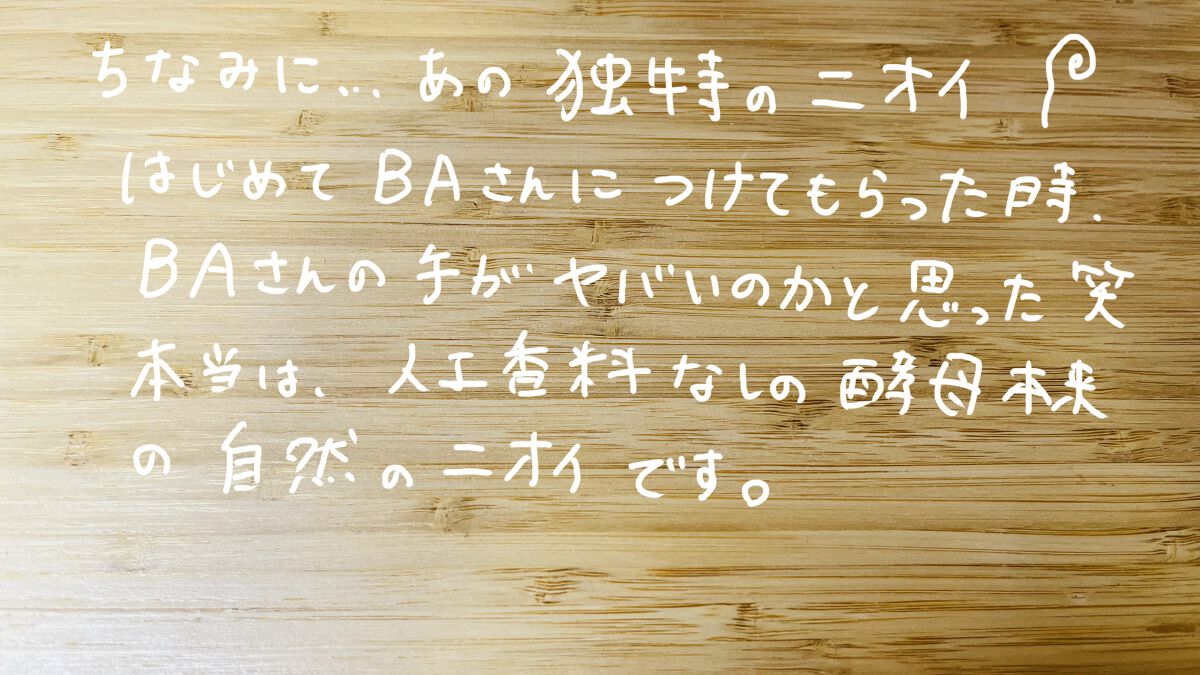 ちなみに... あの 独特の ニオイ
はじめて BAさんに つけてもらった時、
BAさんの 手が ヤバいのかと思った 笑
本当は、人工香料 なしの 酵母本来
の 自然の ニオイ です。